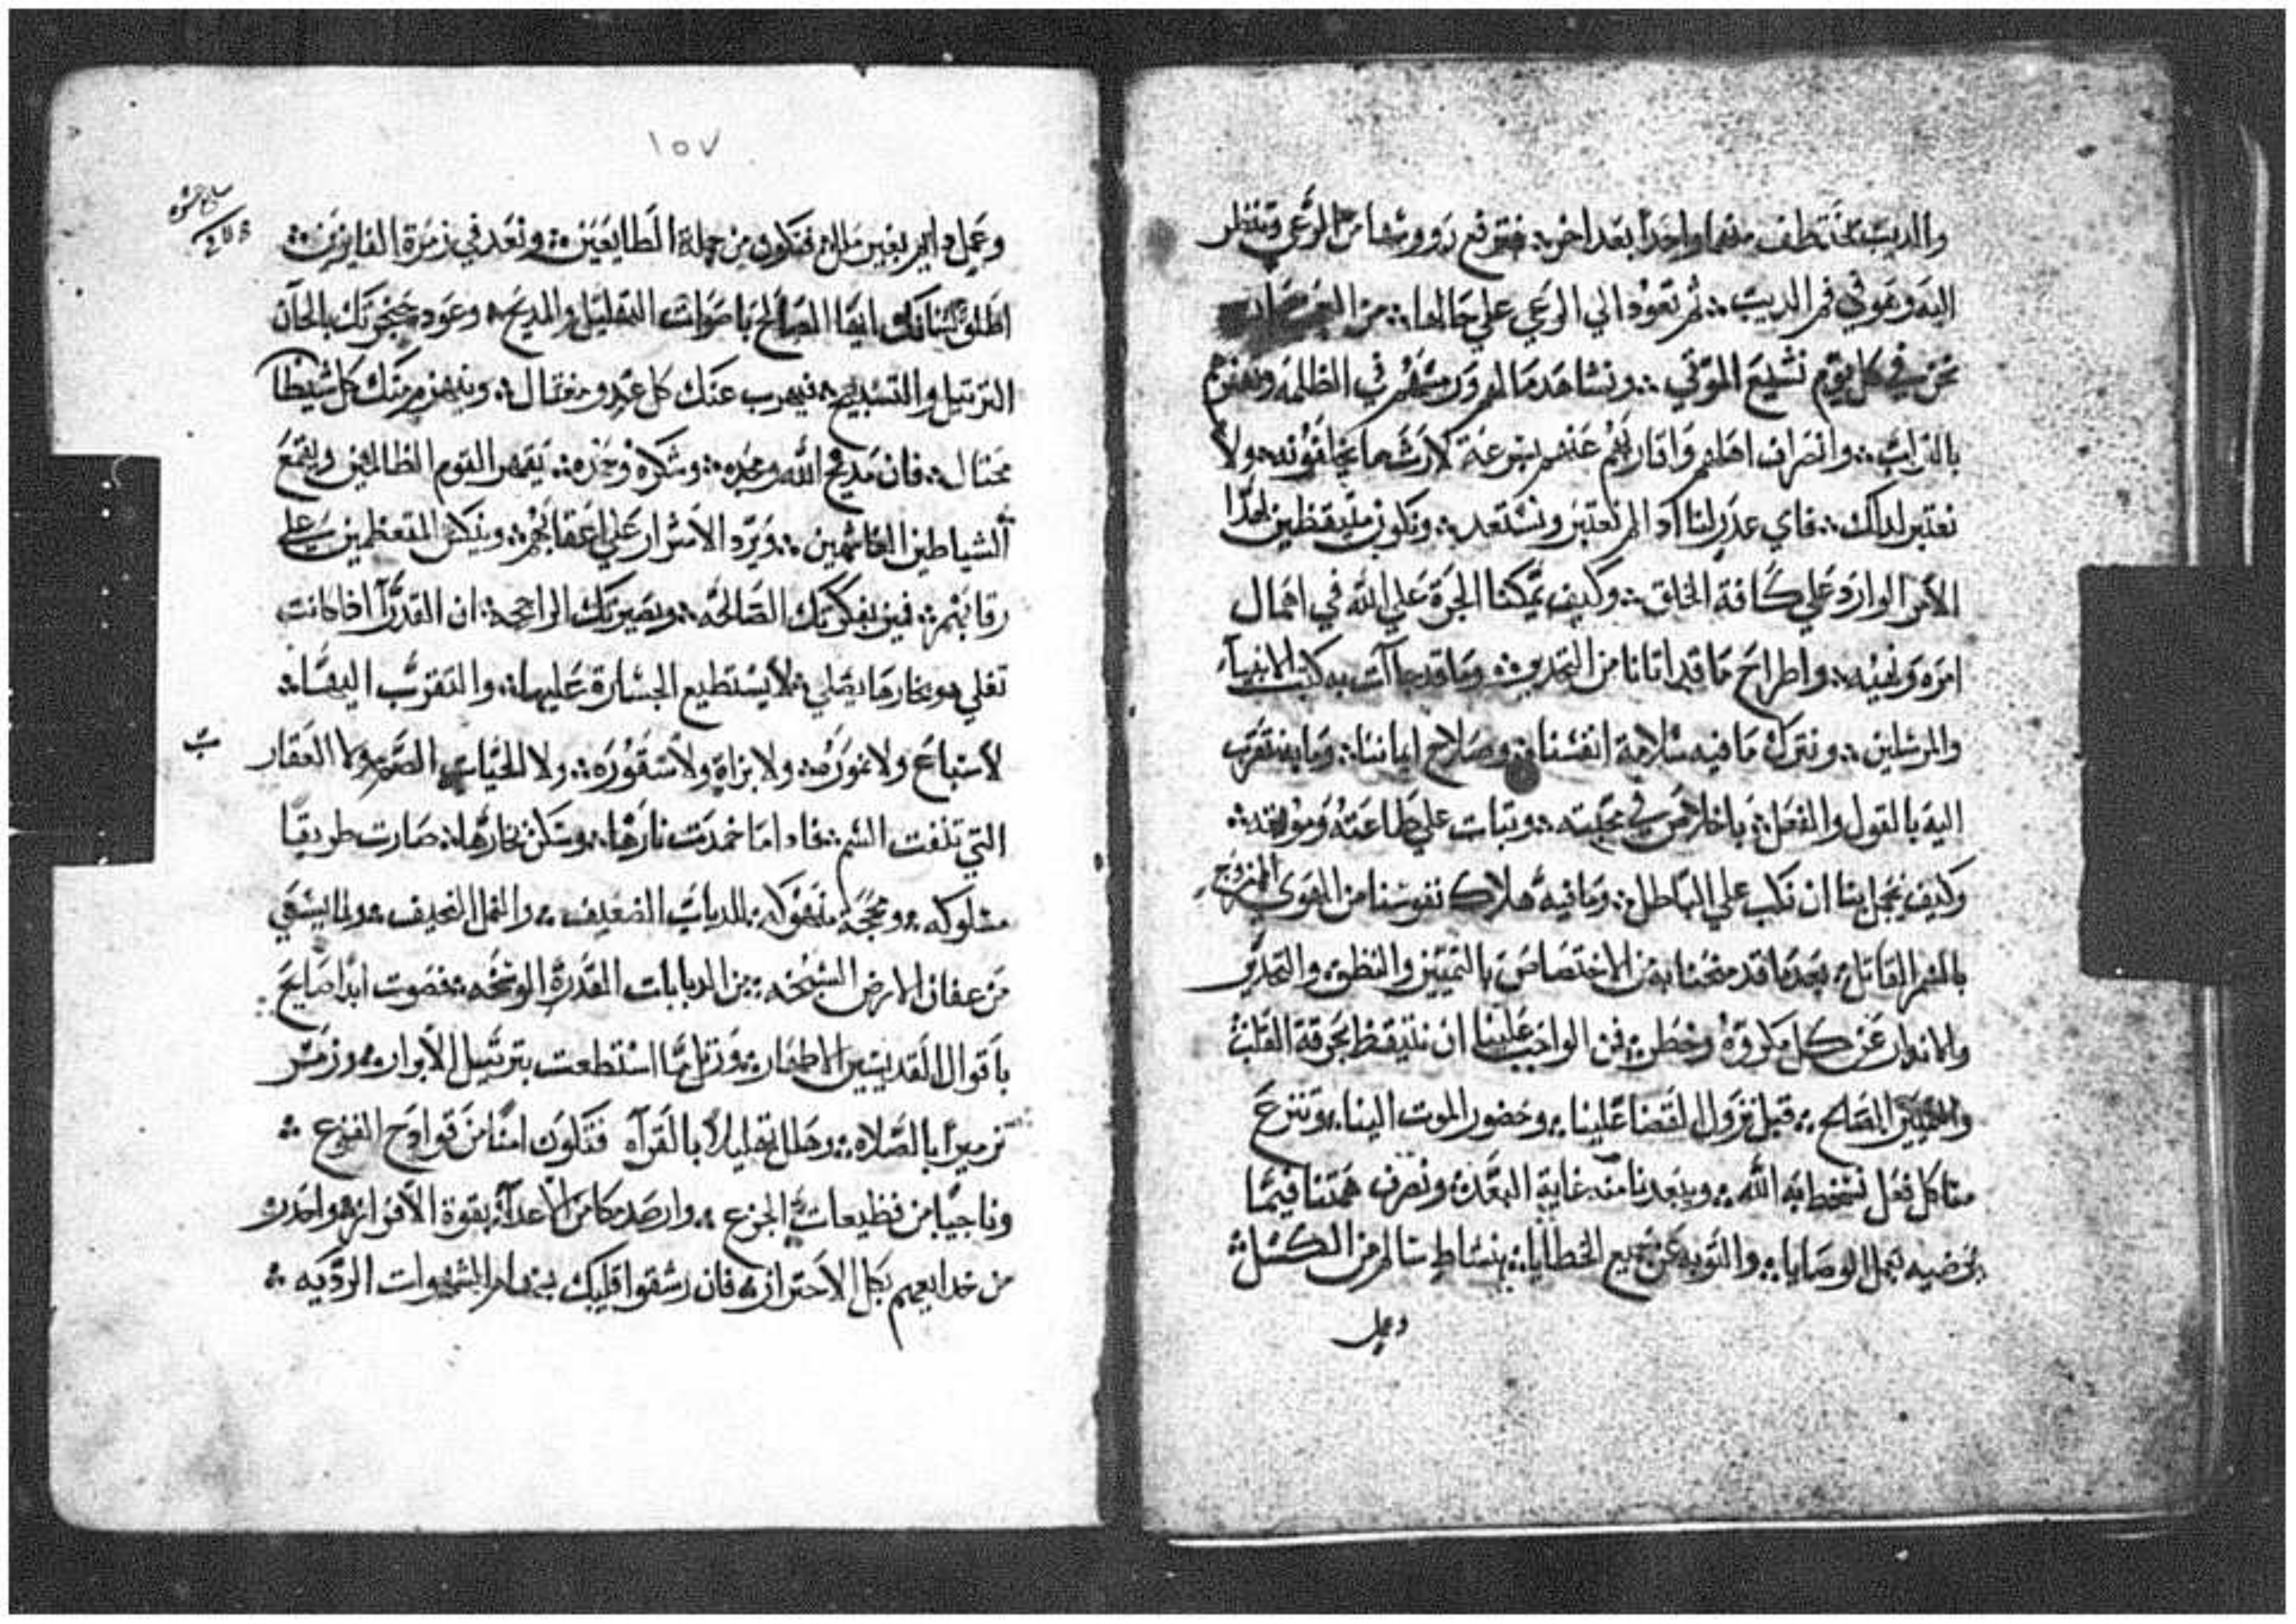 والديب يختطف منها واحدًا بعد اخر፥ فترفع رووسها من الرعي وتنظر
اليه وهو في فم الديب፥ ثم تعود الي الرعي علي حالها፥ من
نحن في كل يوم نشيع الموتي፥ ونشاهد مالهم ورميهم في الظلمه
بالتراب፥ وانصراف اهلهم واقاربهم عنهم بسرعة لارث ما يخلفونه ولا
نعتبر لدلك፥ فاي عدر لنا اد لم نعتبر ونستعد፥ ونكون متيقظين لهدا
الامر الوارد علي كافة الخلق፥ وكيف يمكننا الجرة علي الله في اهمال
امره ونهيه፥ واطراح ما قد اتانا من التحدير፥ وما قد جاآت به كتب الانبيآء
والمرسلين፥ ونترك ما فيه سلامة انفسنا፥ وصلاح ايماننا፥ وما به نتقرب
اليه بالقول والفعل፥ باخلاص في محبته፥ وتبات علي طاعته
وكيف يجمل بنا ان نكب علي الباطل፥ وما فيه هلاك نفوسنا من الهوي الممزوج
بالسم القاتل፥ بعدما قد منحنا به من الاختصاص بالتمييز والنطق፥ والتحدير
والاندار عن كل مكروه وخطر፥ فمن الواجب علينا ان نتيقظ بحرقة القلب
والتمييز الصالح፥ قبل نزول القضا علينا፥ وحضور الموت الينا፥ وننزع
منا كل فعل نسخط به الله፥ ويبعدنا منه غاية البعد፥ ونصرف همتنا فيما
يرضيه بعمل الوصايا፥ والتوبه عن جميع الخطايا፥ بنشاط سالم من الكسل፥
وعمل
١٥٧
وعمل دايم بغير ملل፥ فتكون من جملة الطايعين፥ وتعد في زمرة الفايزين፥
اطلق لسانك ايها الصالح باصوات التهليل والمديح፥ وعود حنجرتك بالحان
الترتيل والتسبيح፥ فيهرب عنك كل عدو مغتال፥ وينهزم منك كل شيطان
محتال፥ فان مديح الله ومجده፥ وشكره وحمده፥ يقهر القوم الظالمين ويقمع
الشياطين الغاشمين፥ ويرد الاشرار علي اعقابهم፥ وينكس المتعظمين علي
رقابهم፥ فميز بفكرتك الصالحه፥ وبصيرتك الراجحه፥ ان القدرآ اداكانت
تغلي وبخارها يصلي፥ لا يستطيع الجسارة عليها፥ والتقرب اليها፥
لا سباع ولا نموره፥ ولا بزاة ولا سقوره፥ ولا الحيات الصم ولا العقارب
التي تنفت السم፥ فادا ما خمدت نارها፥ وسكن بخارها፥ صارت طريقًا
مسلوكه፥ ومحجة منهوكه፥ للدباب الضعيف፥ والنمل النحيف፥ ولما يسعي
من عفان الارض السبخه፥ من الدبابات القدرة الوسخه፥ فصوت ابدًا صايح
باقوال القديسين الاطهار፥ ورتل ما استطعت بترتيل الابرار፥ وزمر
تزميرًا بالصلاه፥ وهلل تهليلا بالقرآه فتكون امنًا من قوادح الفزع፥
وناجيًا من فظيعات الجزع፥ وارصد مكامن الاعدآء بقوة الافراز፥ واحدر
من خدايعهم بكل الاحتراز፥ فان رشقوا قلبك بسهام الشهوات الرديه፥